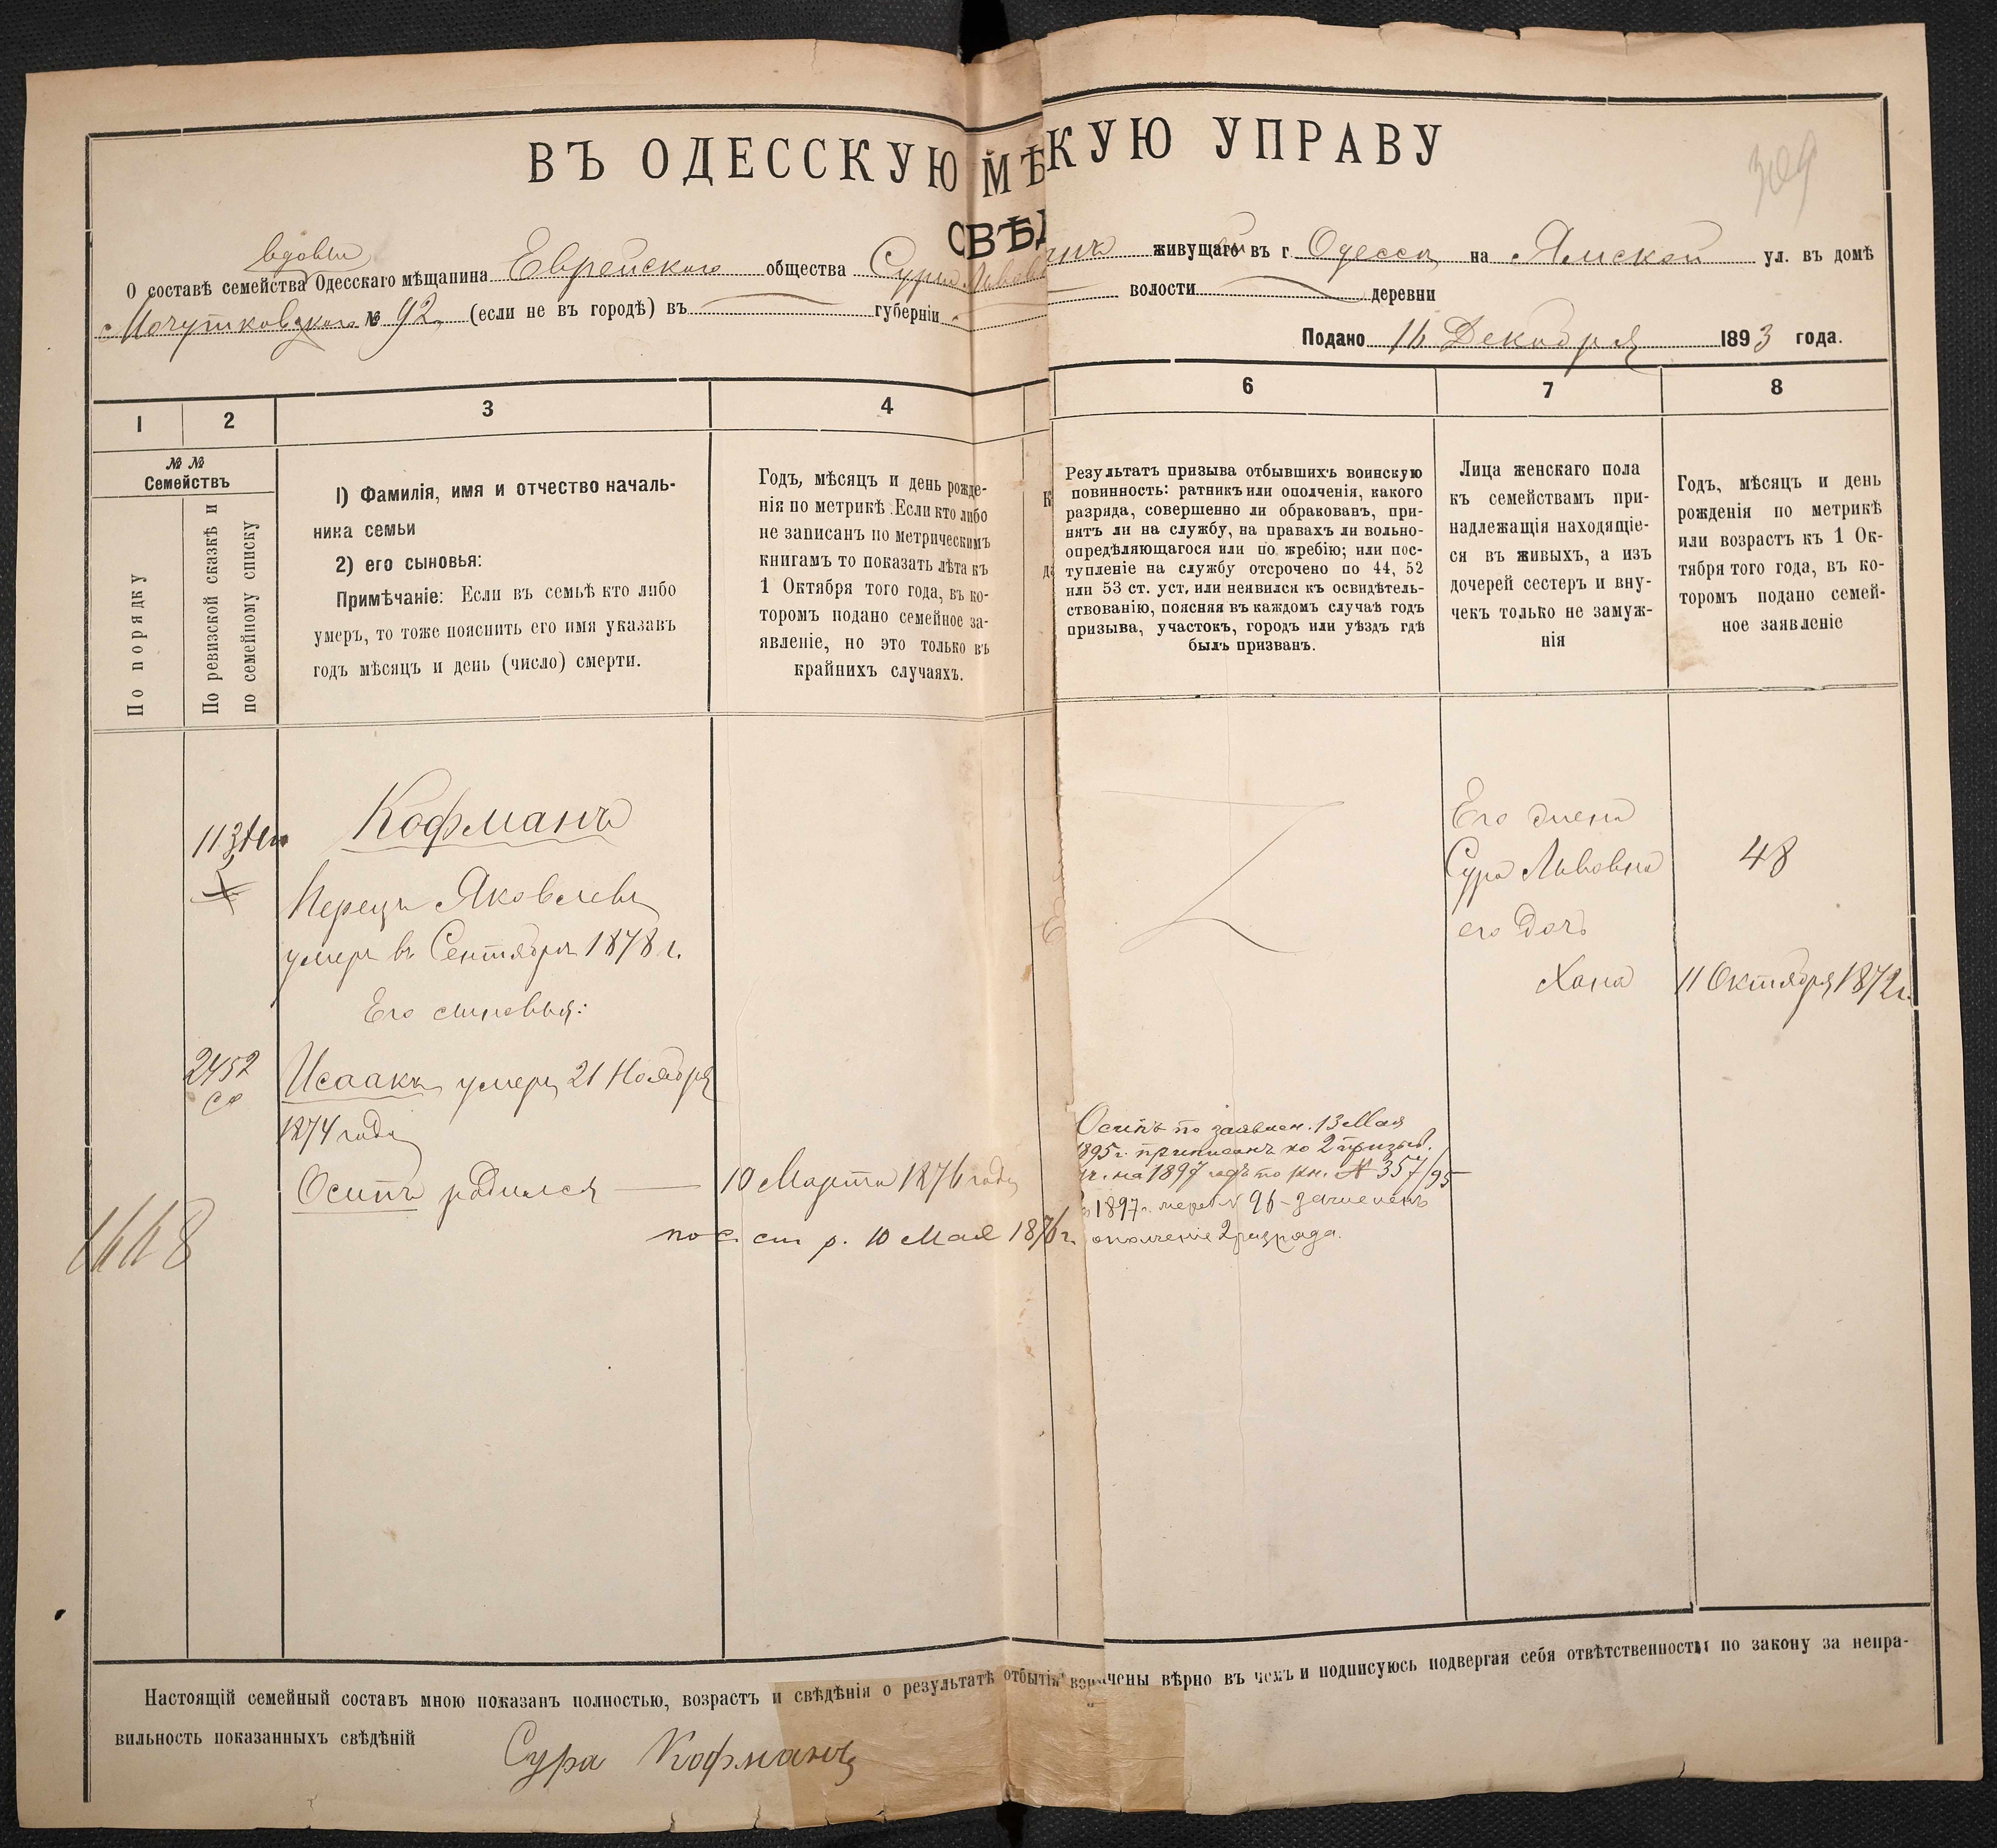 ВЪ ОДЕССКУЮ МѢ
КУЮ УПРАВУ
309
СВѢД
вдовы
О составѣ семейства Одесскаго мѣщанина Еврейскаго общества Суры Львов
живущаго въ г. Одессѣ на Ямской ул. въ домѣ
№ 92 (если не въ городѣ) въ губерніи
волости деревни
Подано 16 Декабря 1893 года.
1 2 3 4 6 7 8
№ №
Семействъ
По порядку
По ревизской сказкѣ и
по семейному списку
1) Фамилія, имя и отчество началь-
ника семьи
2) его сыновья:
Примѣчаніе: Если въ семьѣ кто либо
умеръ, то тоже пояснить его имя указавъ
годъ мѣсяцъ и день (число) смерти.
Годъ, мѣсяцъ и день рожде-
нія по метрикѣ. Если кто либо
не записанъ по метрическимъ
книгамъ то показать лѣта къ
1 Октября того года, въ ко-
торомъ подано семейное за-
явленіе, но это только въ
крайнихъ случаяхъ.
Результатъ призыва отбывшихъ воинскую
повинность: ратникъ или ополченія, какого
разряда, совершенно ли обракованъ, при-
нятъ ли на службу, на правахъ ли вольно-
опредѣляющагося или по жребію; или пос-
тупленіе на службу отсрочено по 44, 52
или 53 ст. уст, или неявился къ освидѣтель-
ствованію, поясняя въ каждомъ случаѣ годъ
призыва, участокъ, городъ или уѣздъ гдѣ
былъ призванъ.
Лица женскаго пола
къ семействамъ при-
надлежащія находящіе-
ся въ живыхъ, а изъ
дочерей сестеръ и вну-
чекъ только не замуж-
нія
Годъ, мѣсяцъ и день
рожденія по метрикѣ
или возрастъ къ 1 Ок-
тября того года, въ ко-
торомъ подано семей-
ное заявленіе
Кофманъ
Перецъ Яковлевъ
умеръ въ Сентябрѣ 1878 г.
Его сыновья:
2452
Исаакъ умеръ 21 Ноября
1874 года
Осипъ родился — 10 Марта 1876 года
по с. сп р. 10 Мая 1876 г.
1668
Осипъ по заявлен. 13 Мая
1895 г. приписанъ ко 2 призыв.
уч. на 1897 годъ по кн. № 357/95
1897 г. жереб № 96 - зачисленъ
ополченіе 2 разряда.
Его жена
Сура Львовна 48
его дочь
Хана 11 Октября 1872 г.
Настоящій семейный составъ мною показанъ полностью, возрастъ и свѣдѣнія о результатѣ отбытія
чены вѣрно въ чемъ и подписуюсь подвергая себя отвѣтственности по закону за непра-
вильность показанныхъ свѣдѣній
Сура Кофманъ